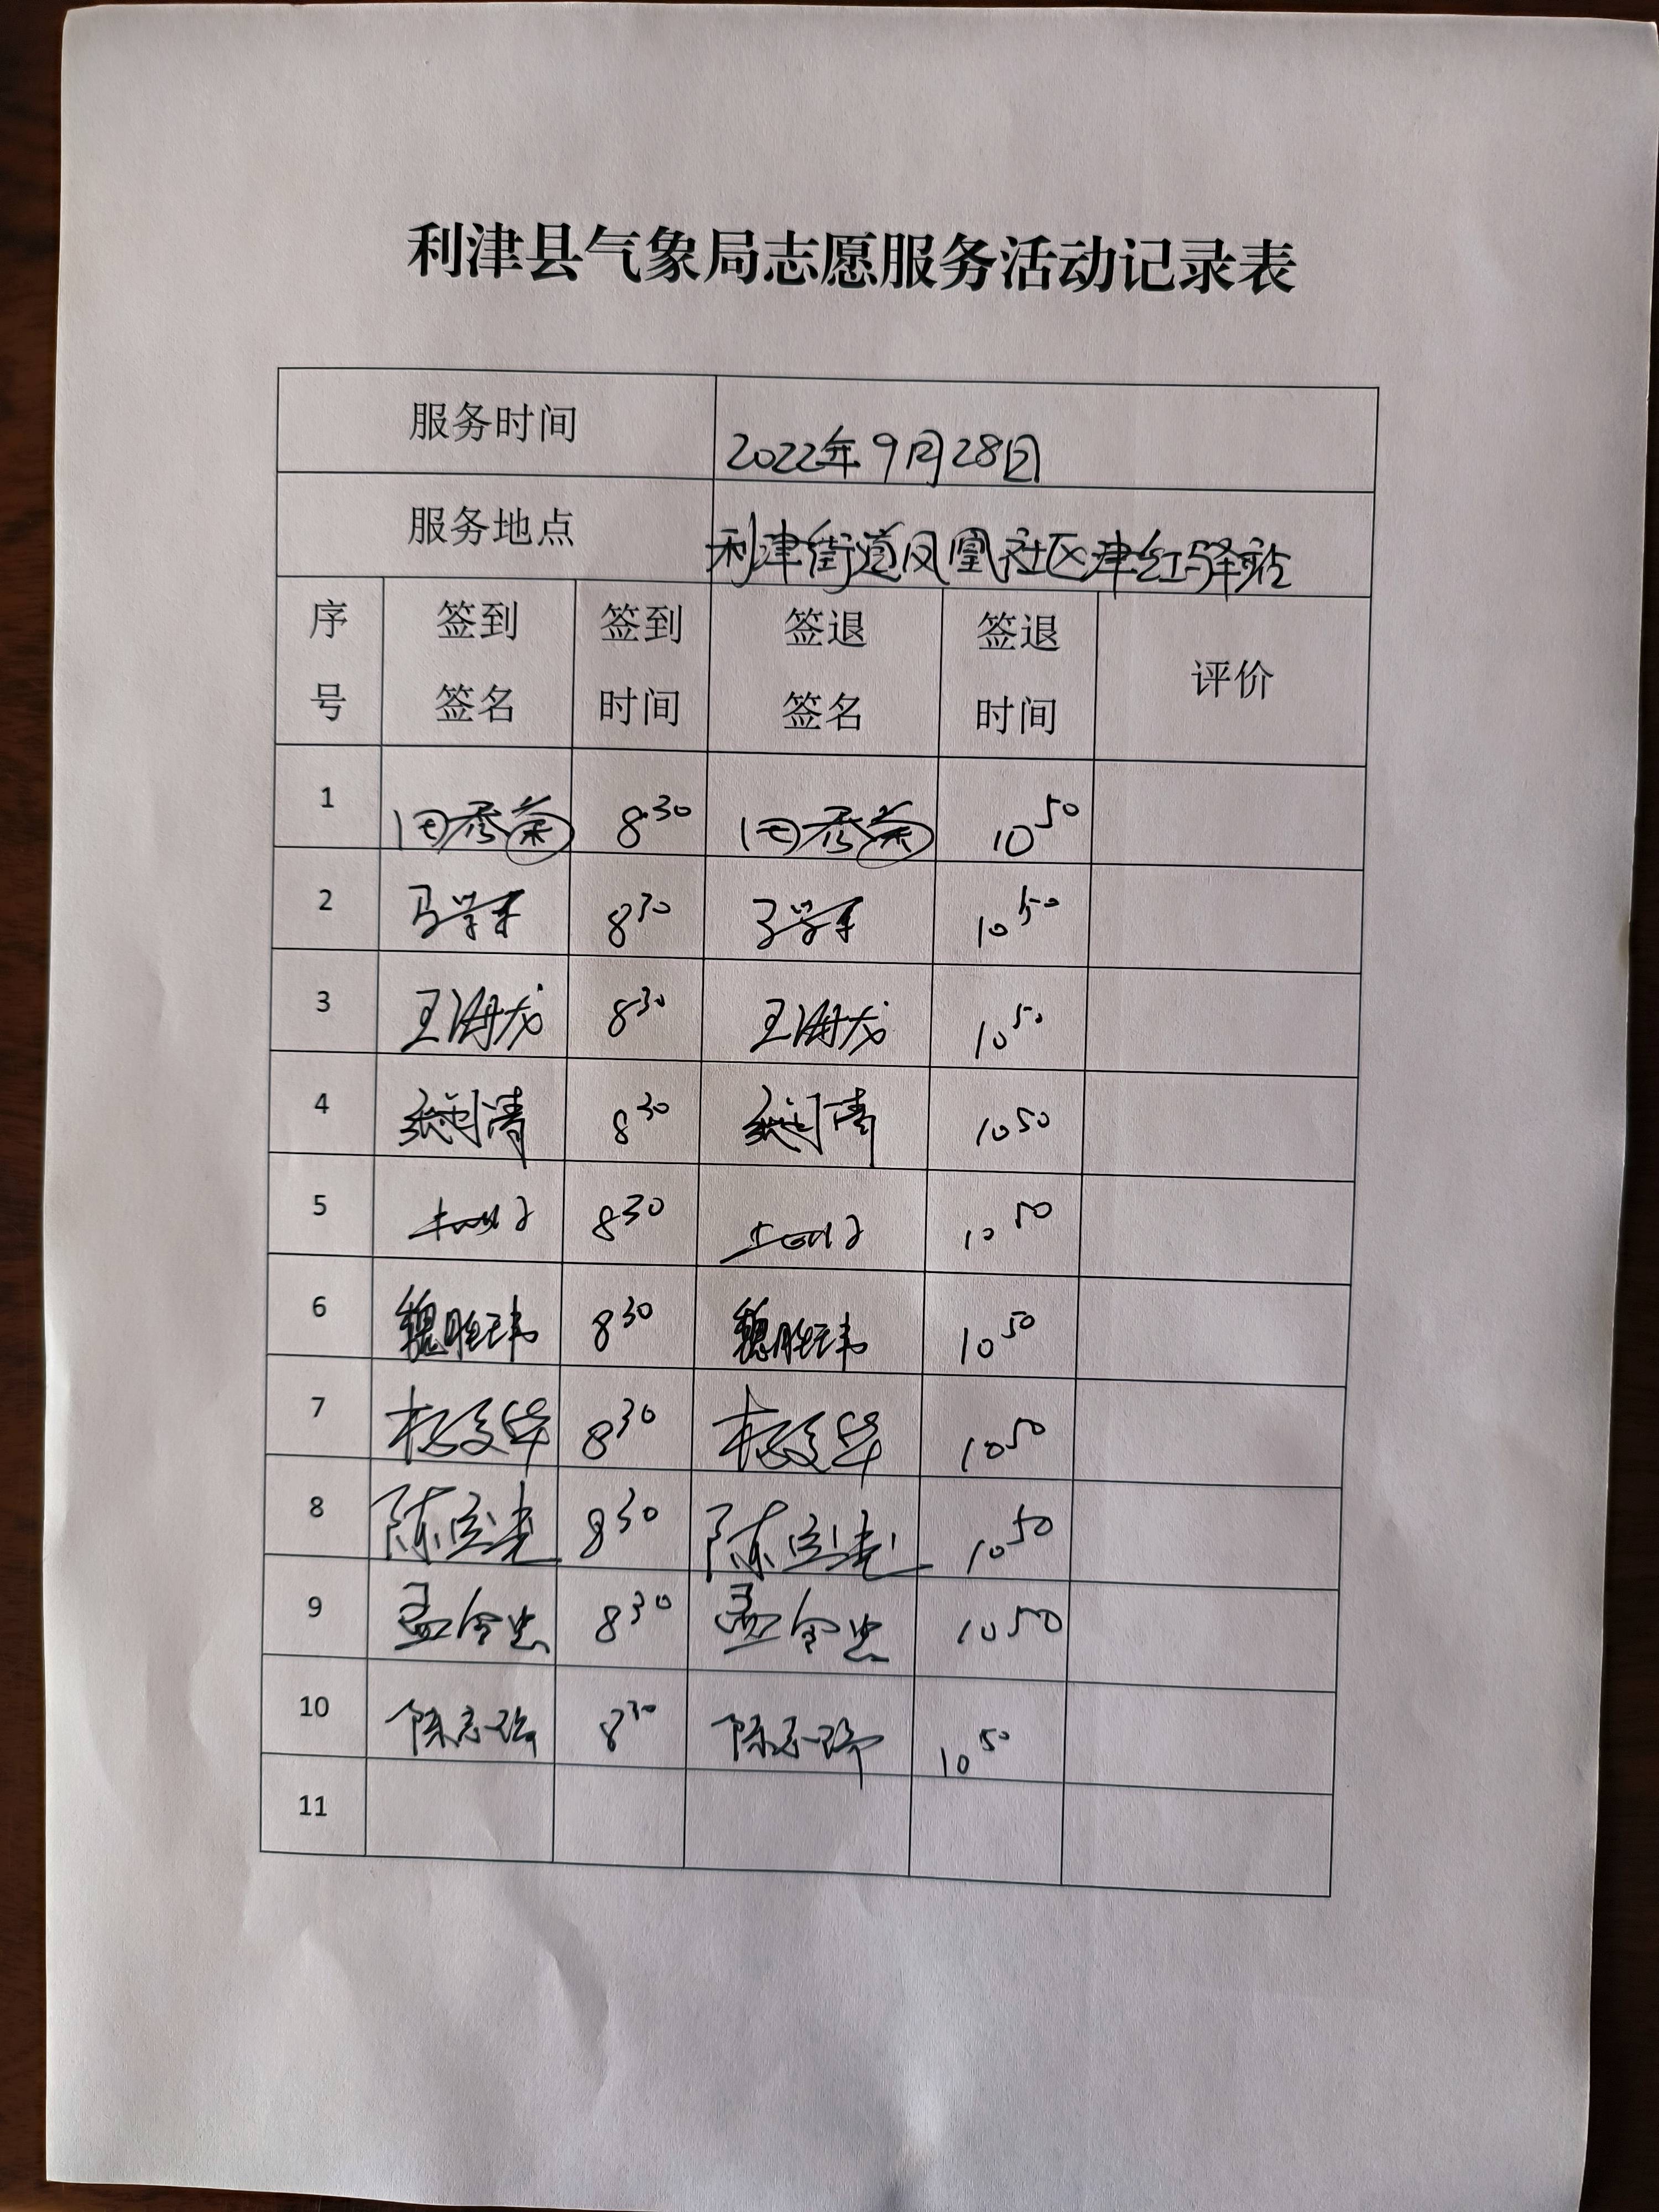 利津县气象局志愿服务活动记录表
服务时间 2022年9月28日
服务地点 利津街道凤凰社区津红驿站
序号 签到签名 签到时间 签退签名 签退时间 评价
1 田秀菊 8 30 田秀菊 10 50
2 8 30 10 50
3 王海龙 8 30 王海龙 10 50
4 8 30 10 50
5 8 30 10 50
6 魏胜玮 8 30 魏胜玮 10 50
7 8 30 10 50
8 8 30 10 50
9 孟令忠 8 30 孟令忠 10 50
10 8 30 10 50
11